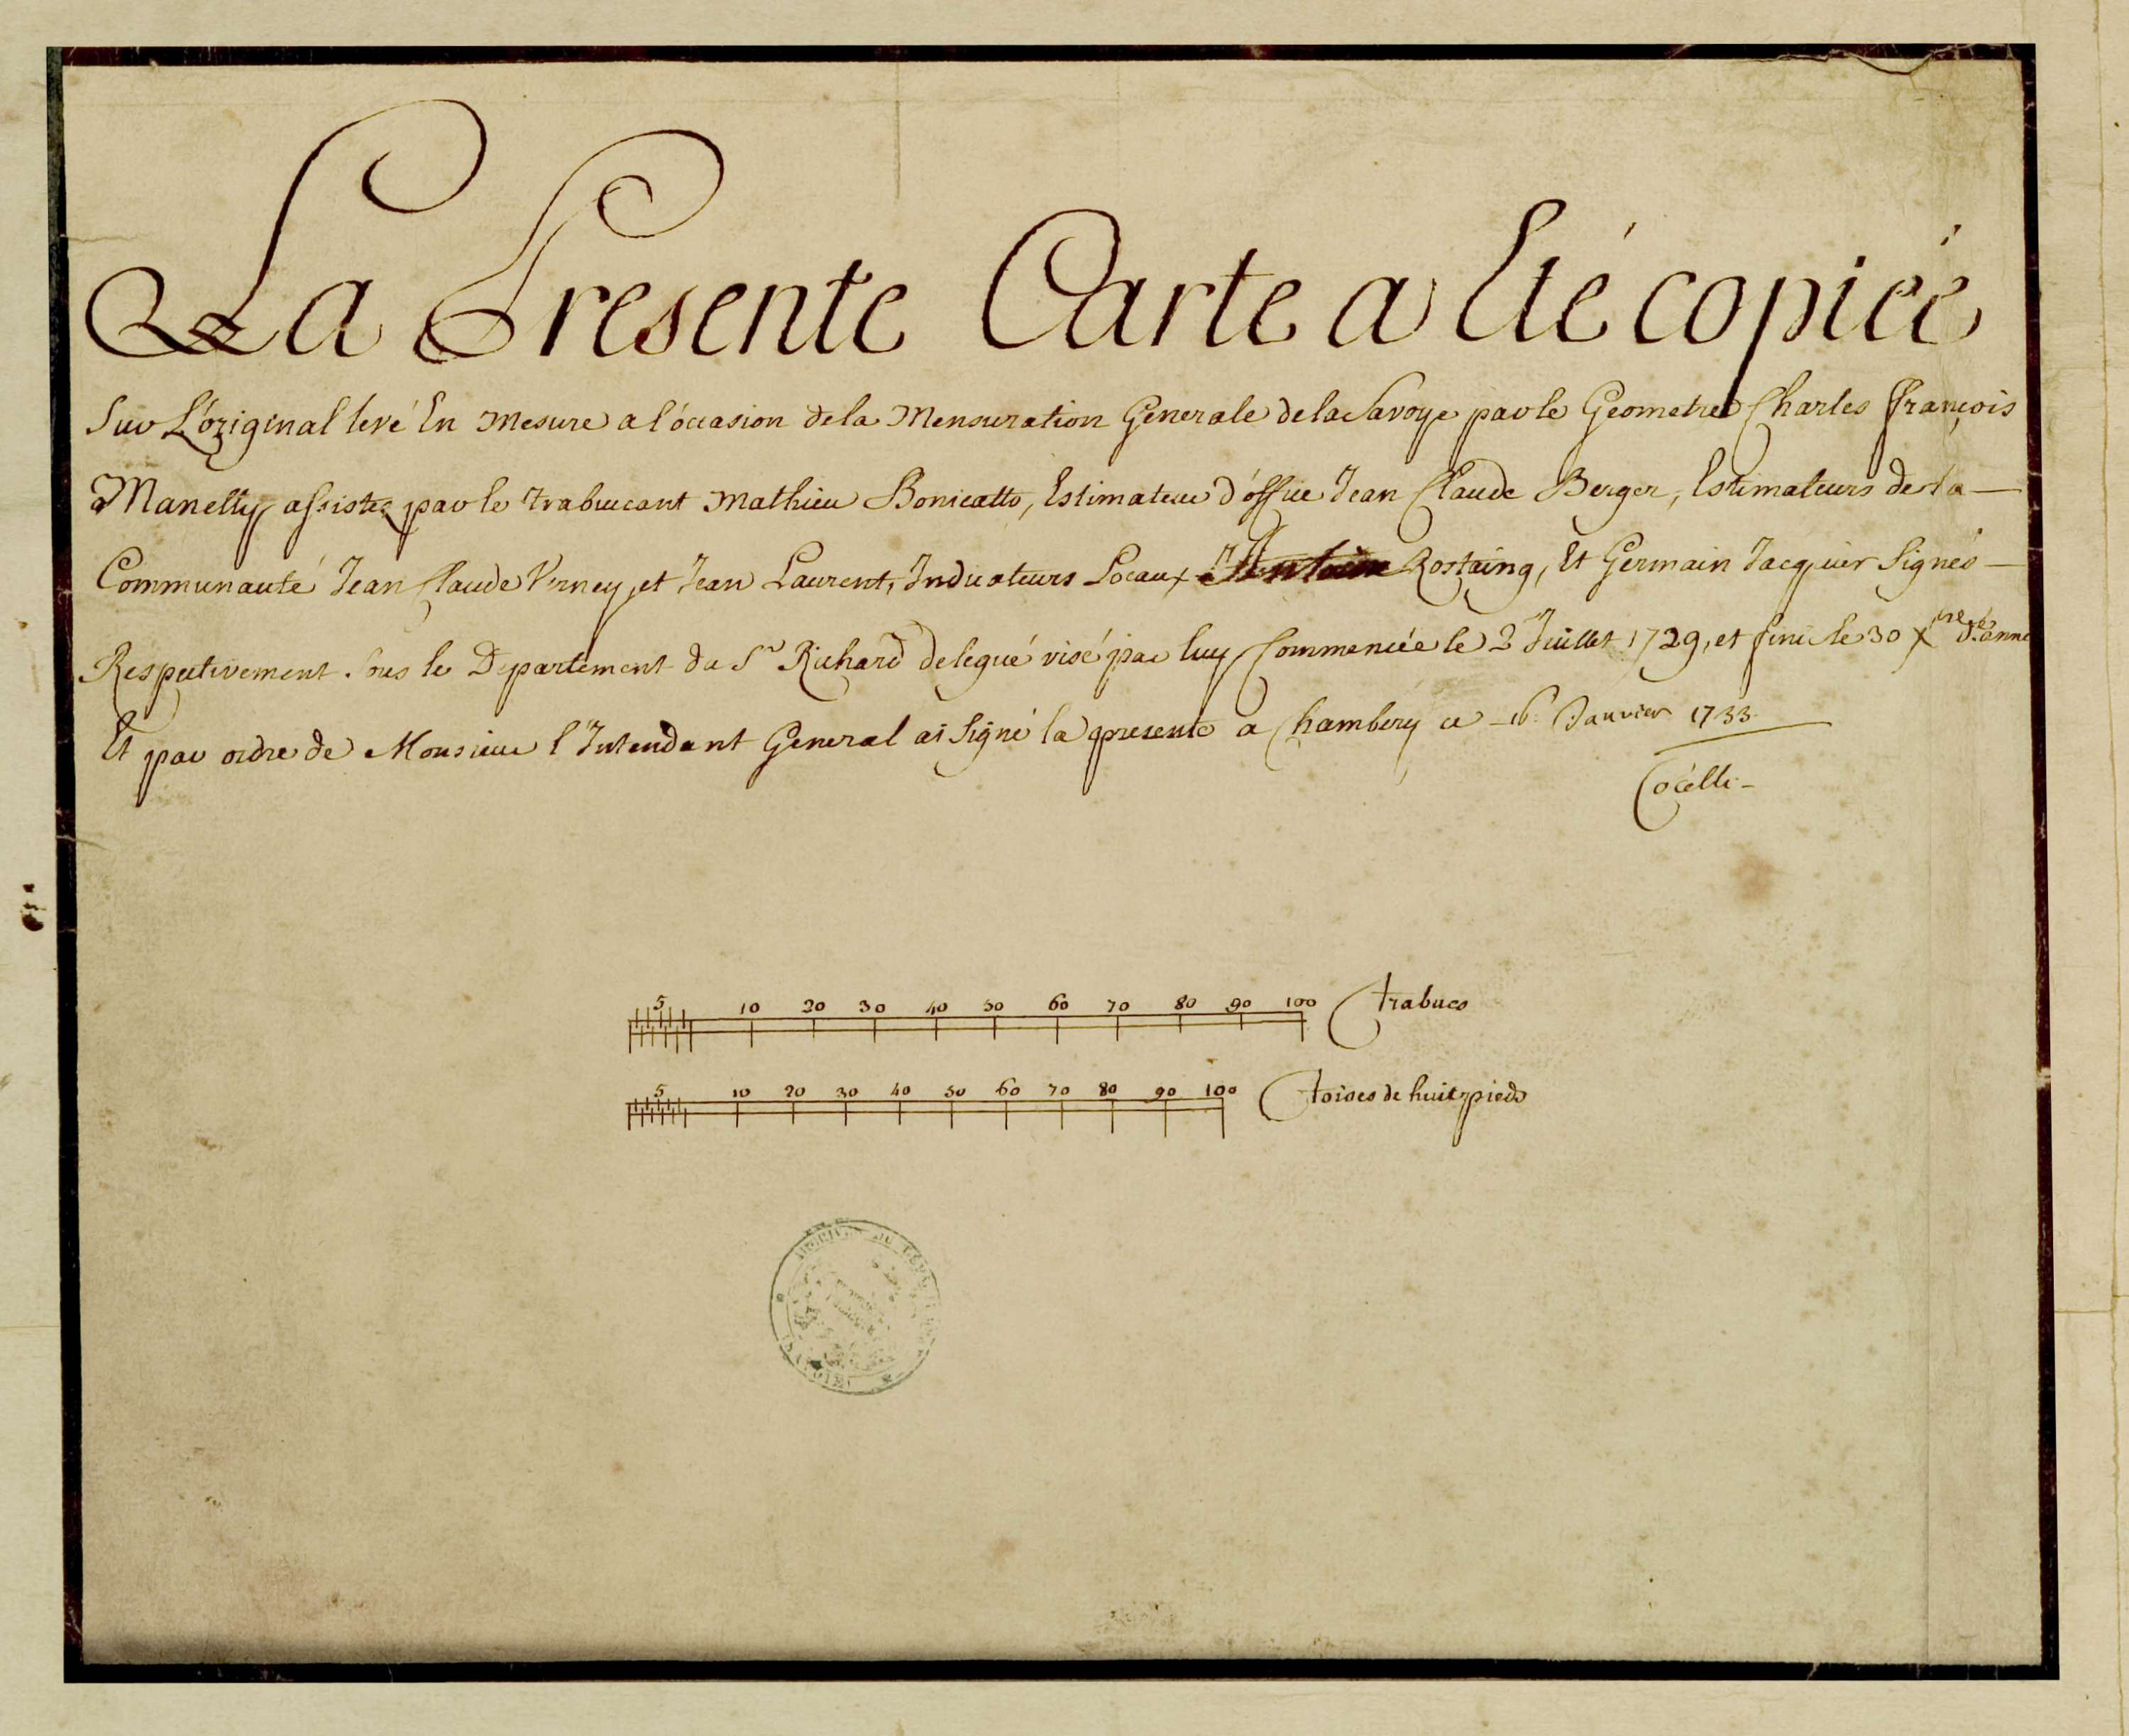 La Presente Carte a Eté copiéé
Sur L'original levé En Mesure a l'óccasion de la Mensuration Generale de la Savoye par le Geometre Charles François
Manelty assistes par le trabucant Mathieu Bonicatto, Estimateur d'óffice Jean Claude Berger, Estimateurs de la
Communauté Jean Claude Verney, et Jean Laurent, Indicateurs Locaux Antoine Rostaing, Et Germain Jacquier Signés
Respectivement Sous le Departement du Sr Richard delegué visé par luy Commencée le 2 Juillet 1729, et fini le 30 Xbre d. anne
Et par ordre de Monsieur l'Intendant General ai Signé la presente a Chambery ce 16 Janvier 1733
Cocelli
5 10 20 30 40 50 60 70 80 90 100 trabucs
5 10 20 30 40 50 60 70 80 90 100 toises de huit pieds